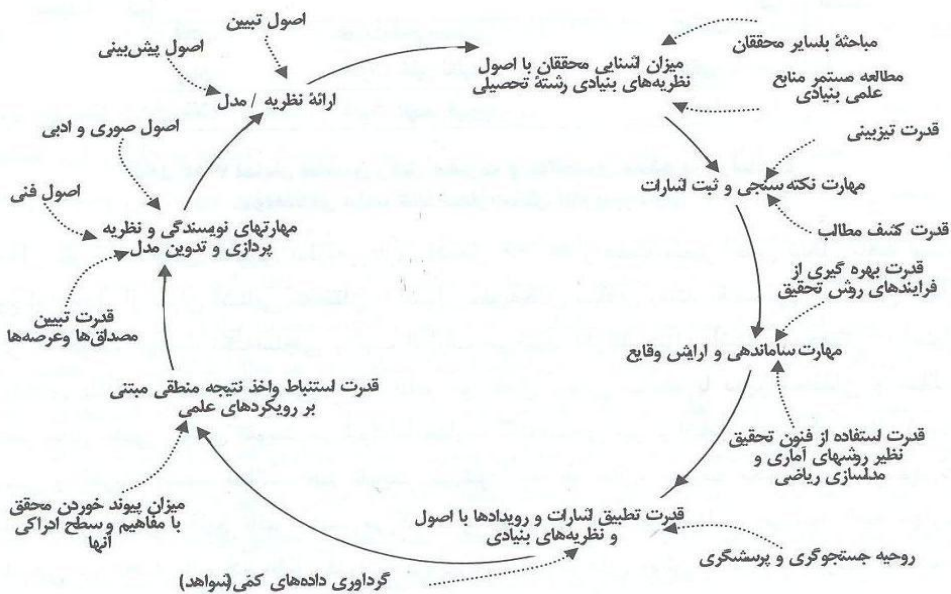 اصول تبیین
اصول پیش‌بینی
ارائهٔ نظریه / مدل
اصول صوری و ادبی
اصول فنی
مهارتهای نویسندگی و نظریه
پردازی و تدوین مدل
قدرت تبیین
مصداق‌ها وعرصه‌ها
قدرت استنباط واخذ نتیجه منطقی مبتنی
بر رویکردهای علمی
میزان پیوند خوردن محقق
با مفاهیم وسطح ادراکی
آنها
گرداوری داده‌های کمّی(شواهد)
میزان اشنایی محققان با اصول
نظریه‌های بنیادی رشتهٔ تحصیلی
مباحثهٔ باسایر محققان
مطالعه مستمر منابع
علمی بنیادی
قدرت تیزبینی
مهارت نکته سنجی و ثبت اشارات
قدرت کشف مطالب
قدرت بهره گیری از
فرایندهای روش تحقیق
مهارت ساماندهی و ارایش وقایع
قدرت استفاده از فنون تحقیق
نظیر روشهای آماری و
مدلسازی ریاضی
قدرت تطبیق اشارات و رویدادها با اصول
و نظریه‌های بنیادی
روحیه جستجوگری و پرسشگری